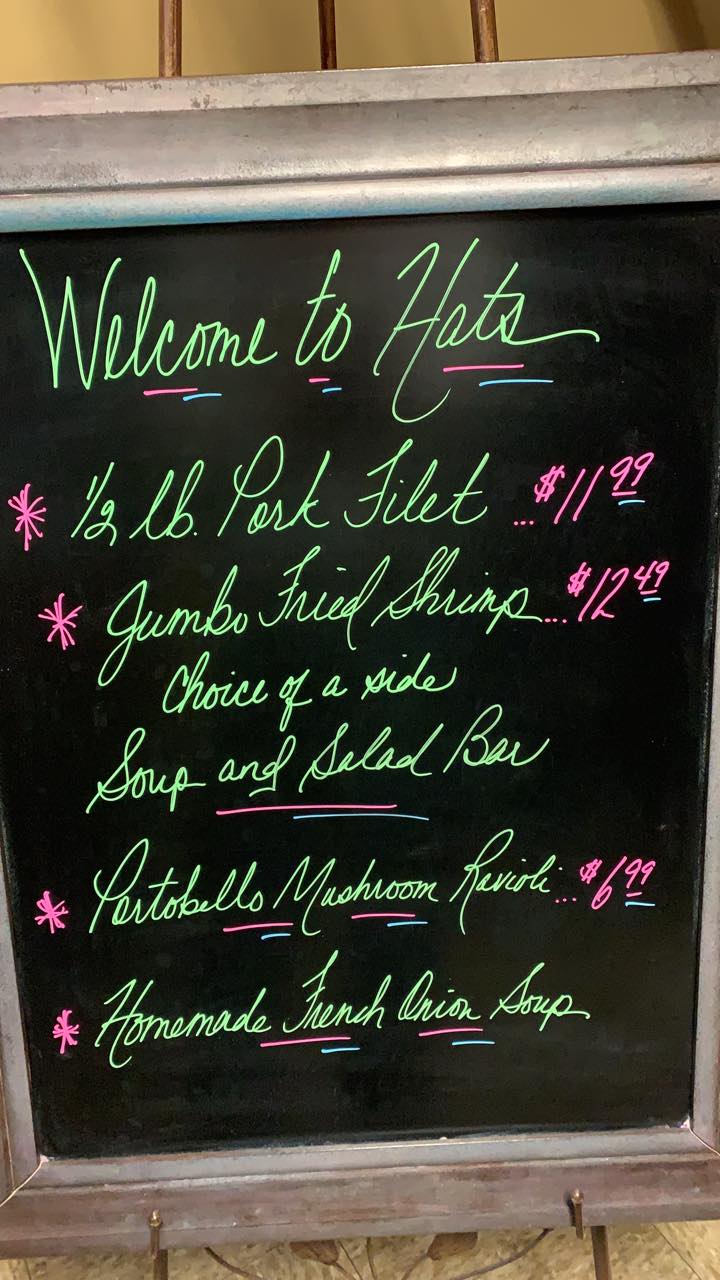 Welcome to Hats
* 1/2 lb. Pork Filet ...$11.99
* Jumbo Fried Shrimp...$12.49
Choice of a side
Soup and Salad Bar
* Portobello Mushroom Ravioli...$6.99
* Homemade French Onion Soup